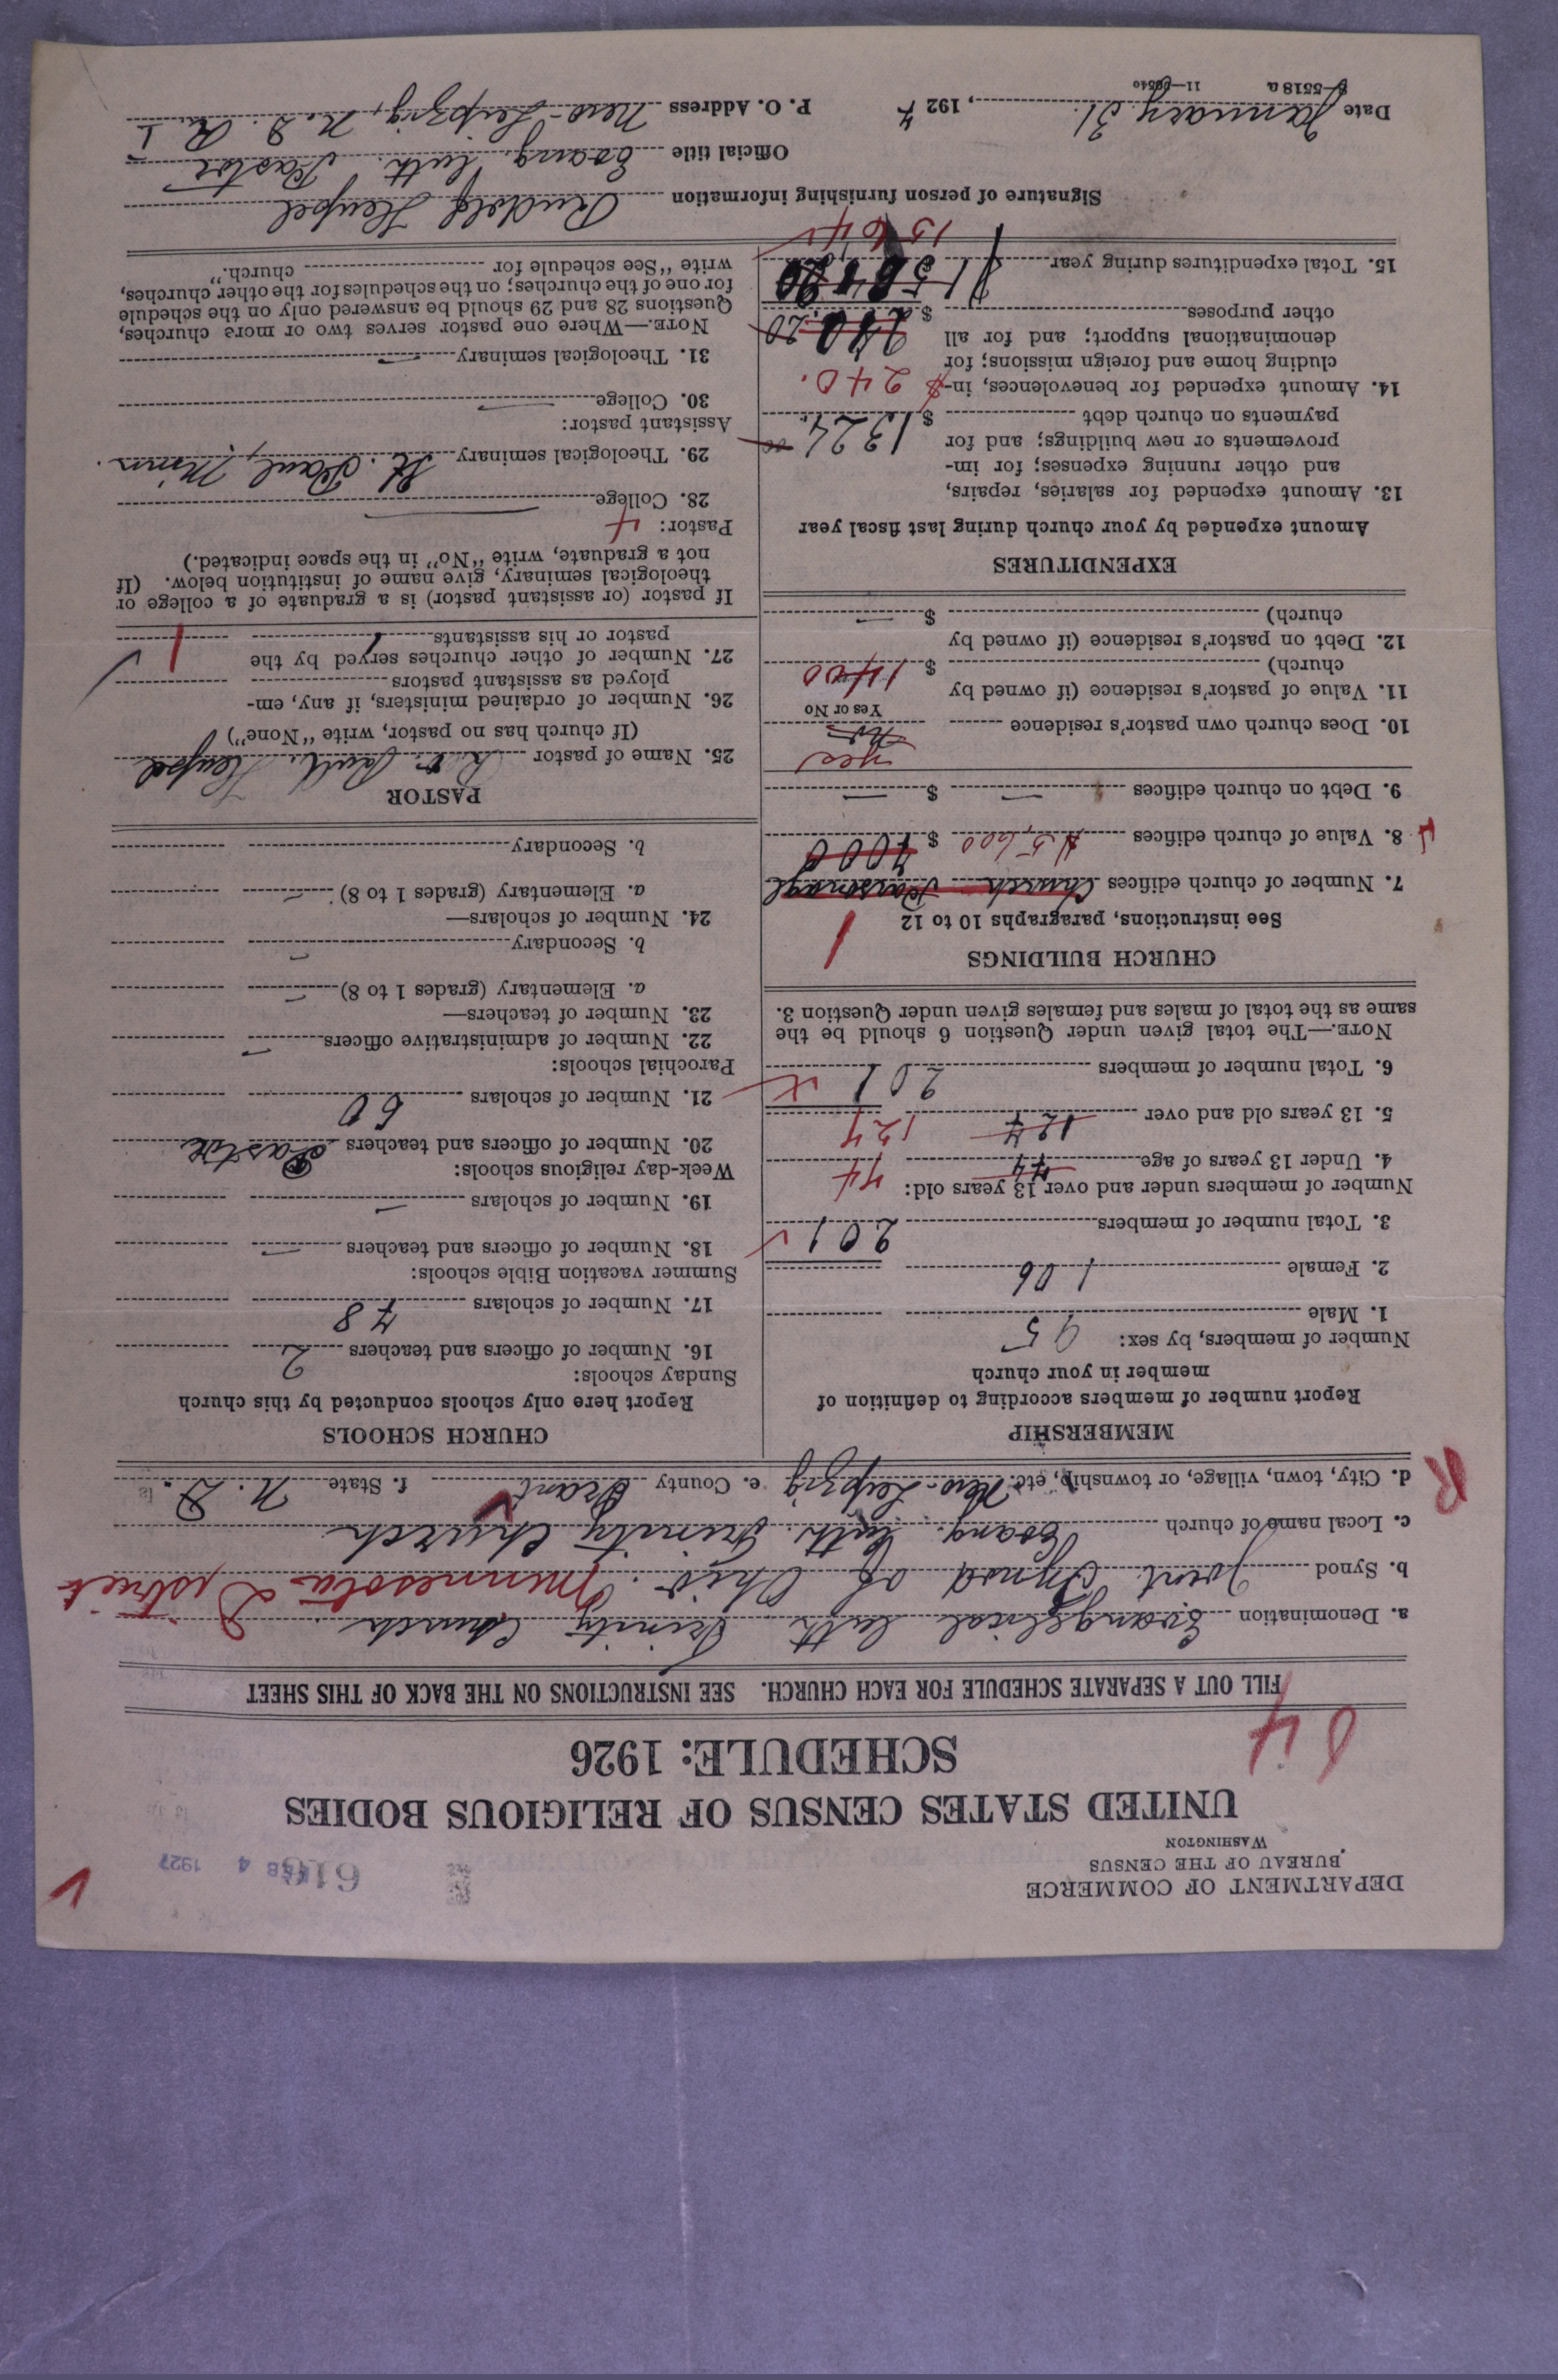 DEPARTMENT OF COMMERCE
BUREAU OF THE CENSUS
WASHINGTON
FEB 4 1927
UNITED STATES CENSUS OF RELIGIOUS BODIES
SCHEDULE: 1926
FILL OUT A SEPARATE SCHEDULE FOR EACH CHURCH. SEE INSTRUCTIONS ON THE BACK OF THIS SHEET
a. Denomination Evangelical Luth. Trinity Church
b. Synod Joint Synod of Ohio. Minnesota District
c. Local name of church Evang. Luth. Trinity Church
d. City, town, village, or township, etc. New-Leipzig e. County Grant f. State N. D.
R
MEMBERSHIP
Report number of members according to definition of
member in your church
Number of members, by sex:
1. Male 95
2. Female 106
3. Total number of members 201
Number of members under and over 13 years old:
4. Under 13 years of age 74 74
5. 13 years old and over 127 127
6. Total number of members 201
NOTE.—The total given under Question 6 should be the
same as the total of males and females given under Question 3.
CHURCH BUILDINGS
See instructions, paragraphs 10 to 12
1
7. Number of church edifices Church Parsonage
8. Value of church edifices $5,600 $ 7000
9. Debt on church edifices — $ —
10. Does church own pastor's residence yes
Yes or No
11. Value of pastor's residence (if owned by
church) $ 1400
12. Debt on pastor's residence (if owned by
church) $ —
EXPENDITURES
Amount expended by your church during last fiscal year
13. Amount expended for salaries, repairs,
and other running expenses; for im-
provements or new buildings; and for
payments on church debt $ 1324.
14. Amount expended for benevolences, in-
cluding home and foreign missions; for
denominational support; and for all
other purposes $ 240.20
$ 240.
15. Total expenditures during year $1564.20
1564
CHURCH SCHOOLS
Report here only schools conducted by this church
Sunday schools:
16. Number of officers and teachers 2
17. Number of scholars 48
Summer vacation Bible schools:
18. Number of officers and teachers —
19. Number of scholars —
Week-day religious schools:
20. Number of officers and teachers Pastor
21. Number of scholars 60
Parochial schools:
22. Number of administrative officers —
23. Number of teachers—
a. Elementary (grades 1 to 8) —
b. Secondary —
24. Number of scholars—
a. Elementary (grades 1 to 8) —
b. Secondary
PASTOR
25. Name of pastor Rev. Rud. Heupel
(If church has no pastor, write "None")
26. Number of ordained ministers, if any, em-
ployed as assistant pastors
27. Number of other churches served by the
pastor or his assistants 1 1
If pastor (or assistant pastor) is a graduate of a college or
theological seminary, give name of institution below. (If
not a graduate, write "No" in the space indicated.)
Pastor:
28. College —
29. Theological seminary St. Paul, Minn.
Assistant pastor:
30. College —
31. Theological seminary —
NOTE.—Where one pastor serves two or more churches,
Questions 28 and 29 should be answered only on the schedule
for one of the churches; on the schedules for the other churches,
write "See schedule for church."
Signature of person furnishing information Rudolf Heupel
Official title Evang. Luth. Pastor
Date January 31., 192 P. O. Address New-Leipzig, N. D. R. 1
8—5518 a